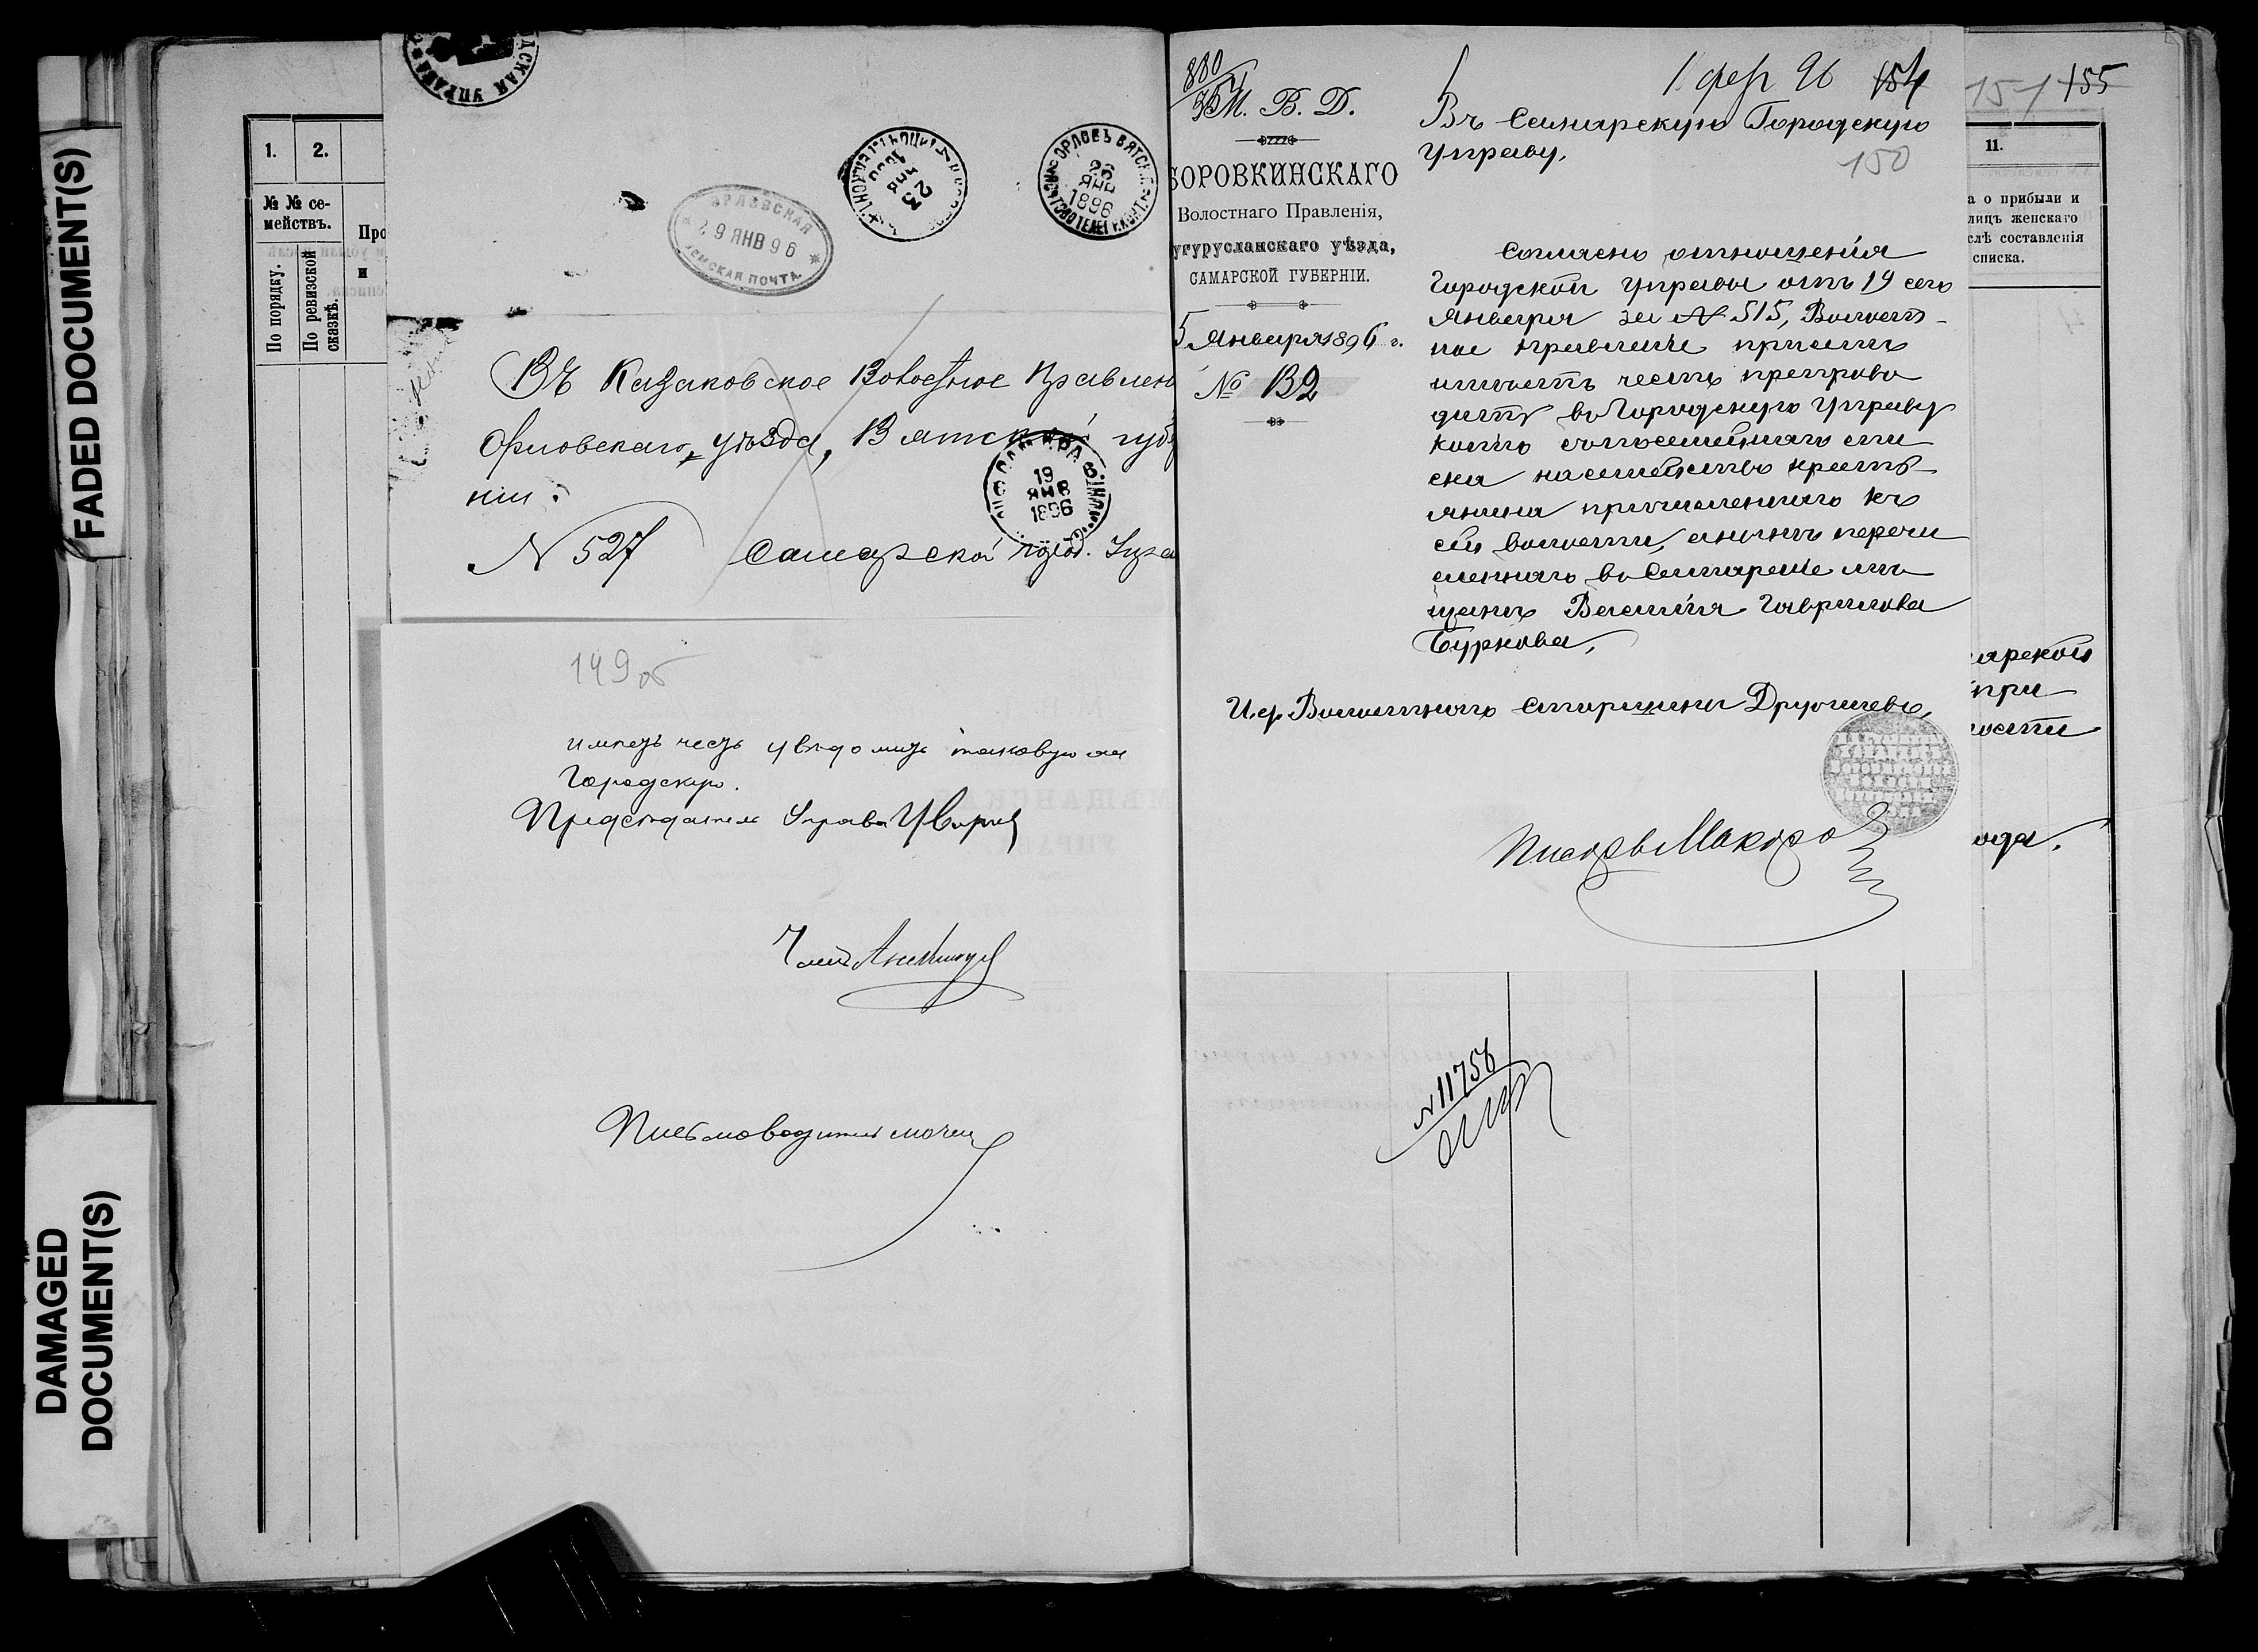 FADED DOCUMENT(S)
DAMAGED
DOCUMENT(S)
1.
2.
№ № се-
мействъ.
По порядку.
По ревизской
сказкѣ.
Про
и
ДСКАЯ УПРАВА
ОРЛОВСКАЯ
29 ЯНВ 96
ЗЕМСКАЯ ПОЧТА
23
ЯНВ
ОРЛОВЪ ВЯТСК.
26
ЯНВ
1896
Въ Казаковское Волостное Правлен
Орловскаго, уѣзда, Вятской губ
ніи.
САМАРА
19
ЯНВ
1896
N 527
Самарской город. Упра
149 об
имѣетъ честь увѣдомить таковую
Городскую.
Предсѣдатель Управы
Членъ
Письмоводитель
880
М. В. Д.
БОРОВКИНСКАГО
Волостнаго Правленія,
угурусланскаго уѣзда,
САМАРСКОЙ ГУБЕРНІИ.
5 Января 1896 г.
№ 132
1 фер 96
154
Въ Самарскую Городскую
Управу.
150
Согласно отношенія
Городской Управы отъ 19 сего
Января за № 515, Волост-
ное правленіе при семъ
имѣетъ честь препрово
дить въ Городскую Управу
копію съ посемейнаго спи
ска на семейство кресть-
янина причисленнаго къ
сей волости, а нынѣ перечи
сленнаго въ Самарскіе мѣ
щане Василія Гаврилова
Буркова.
И. д. Волостного Старшины
Писарь Макаро
N 11756
151
155
11.
а о прибыли и
лицъ женскаго
слѣ составленія
списка.
арской
при
ости
ода.